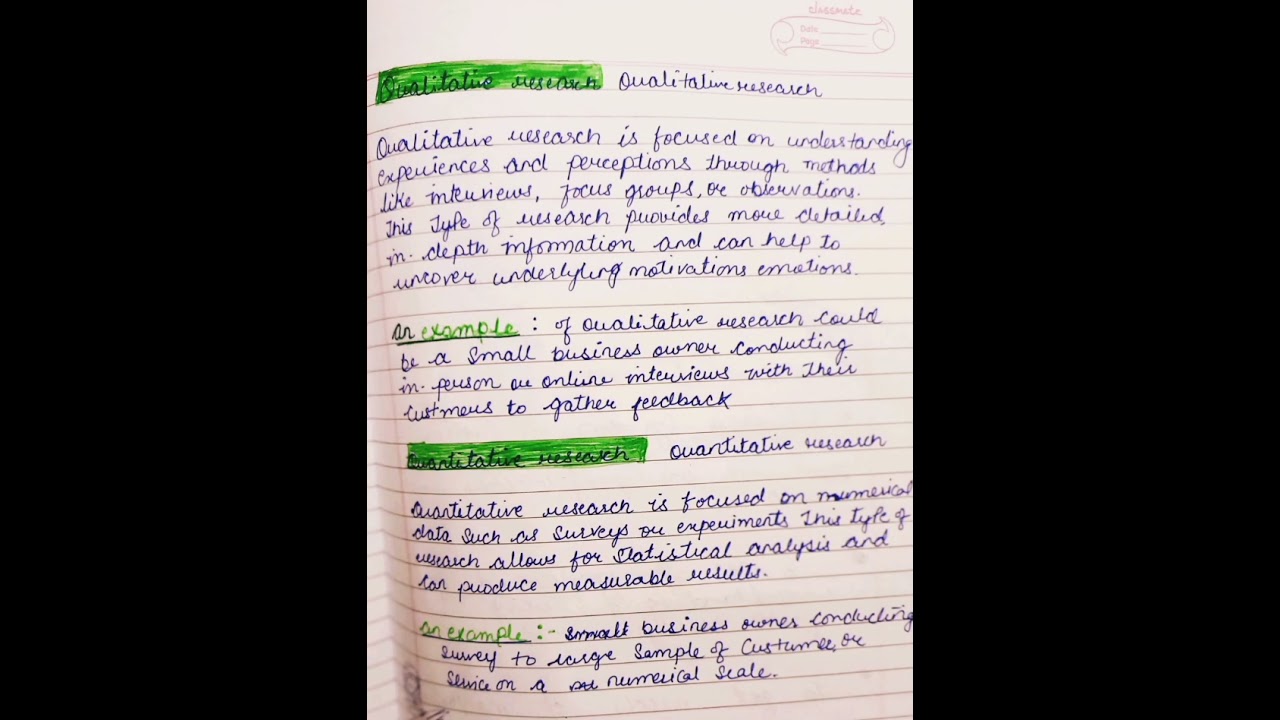 classmate
Date
Page
Qualitative research Qualitative research
Qualitative research is focused on understanding
experiences and perceptions through methods
like interviews, focus groups, or observations.
This Type of research provides more detailed,
in-depth information and can help to
uncover underlyling motivations emotions.
an example : of Qualitative research could
be a small business owner conducting
in-person or online interviews with their
custmers to gather feedback
Quantitative research Quantitative research
Quantitative research is focused on numerical
data such as surveys or experiments This type of
research allows for statistical analysis and
can produce measurable results.
an example :- small business owner conducting
survey to large sample of customer, or
service on a numerical scale.